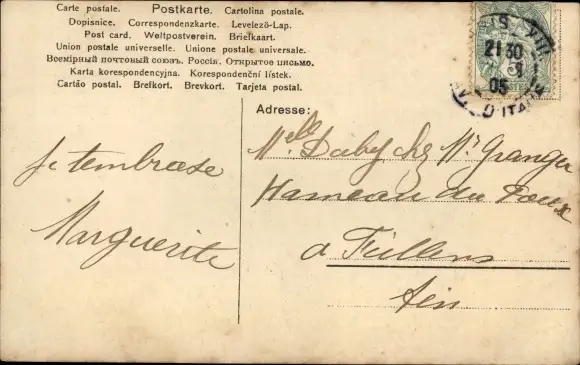 Carte postale. Postkarte. Cartolina postale.
Dopisnice. Correspondenzkarte. Levelező-Lap.
Post card. Weltpostverein. Briefkaart.
Union postale universelle. Unione postale universale.
Всемірный почтовый союзъ. Россія. Открытое письмо.
Karta korespondencyjna. Korespondenční lístek.
Cartão postal. Brefkort. Brevkort. Tarjeta postal.
21 30
05
AV. D'ITALIE
Adresse:
Melle Duby chez Mr Granger
Hameau du
a Tullens
Ain
Je t'embrasse
Marguerite